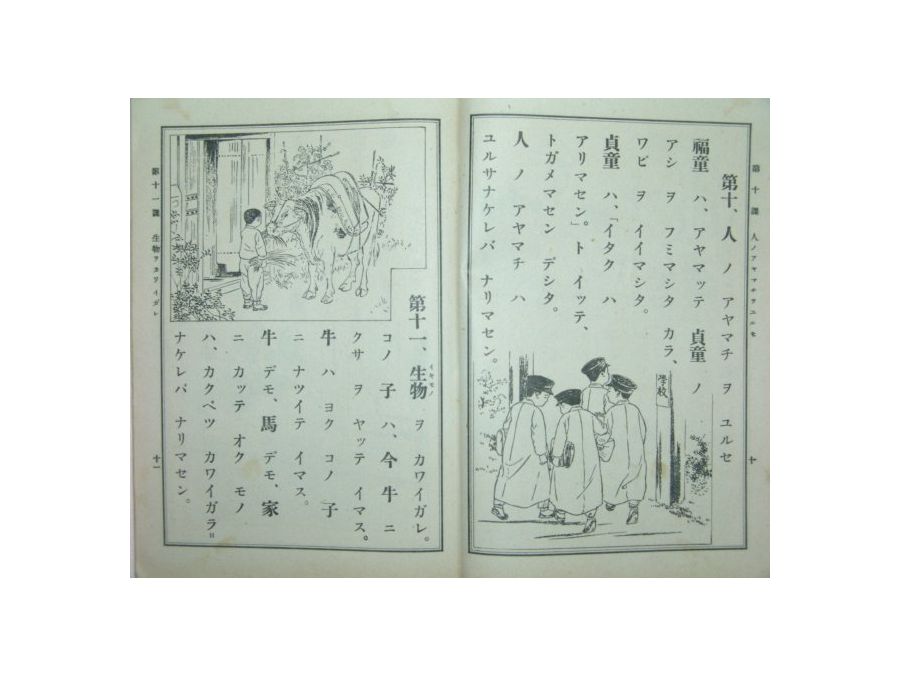 第十課 人ノアヤマチヲユルセ
十
第十、人 ノ アヤマチ ヲ ユルセ
福童 ハ、アヤマッテ 貞童 ノ
アシ ヲ フミマシタ カラ、
ワビ ヲ イイマシタ。
貞童 ハ、「イタク ハ
アリマセン。」ト イッテ、
トガメマセン デシタ。
人 ノ アヤマチ ハ
ユルサナケレバ ナリマセン。
学校
第十一、生物 ヲ カワイガレ。
イキモノ
コノ 子 ハ、今 牛 ニ
クサ ヲ ヤッテ イマス。
牛 ハ ヨク コノ 子
ニ ナツイテ イマス。
牛 デモ、馬 デモ、家
ニ カッテ オク モノ
ハ、カクベツ カワイガラ〓
ナケレバ ナリマセン。
第十一課 生物ヲカワイガレ
十一